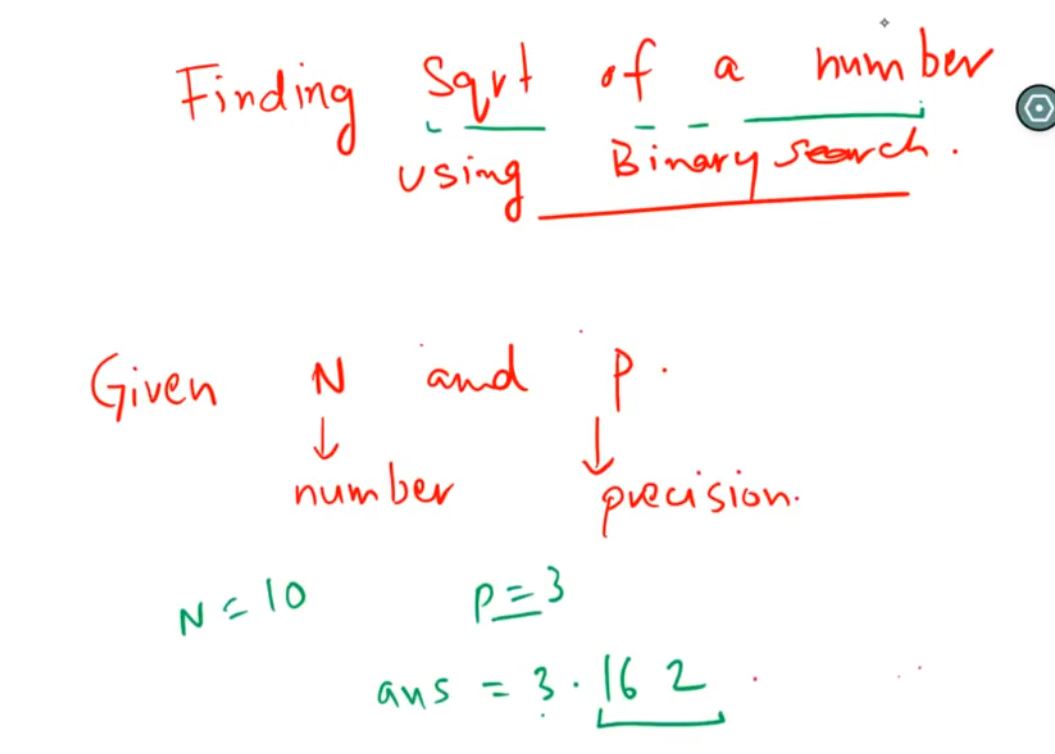 Finding Sqrt of a number
using Binary search.
Given N and P.
number precision.
N = 10 P = 3
ans = 3.162